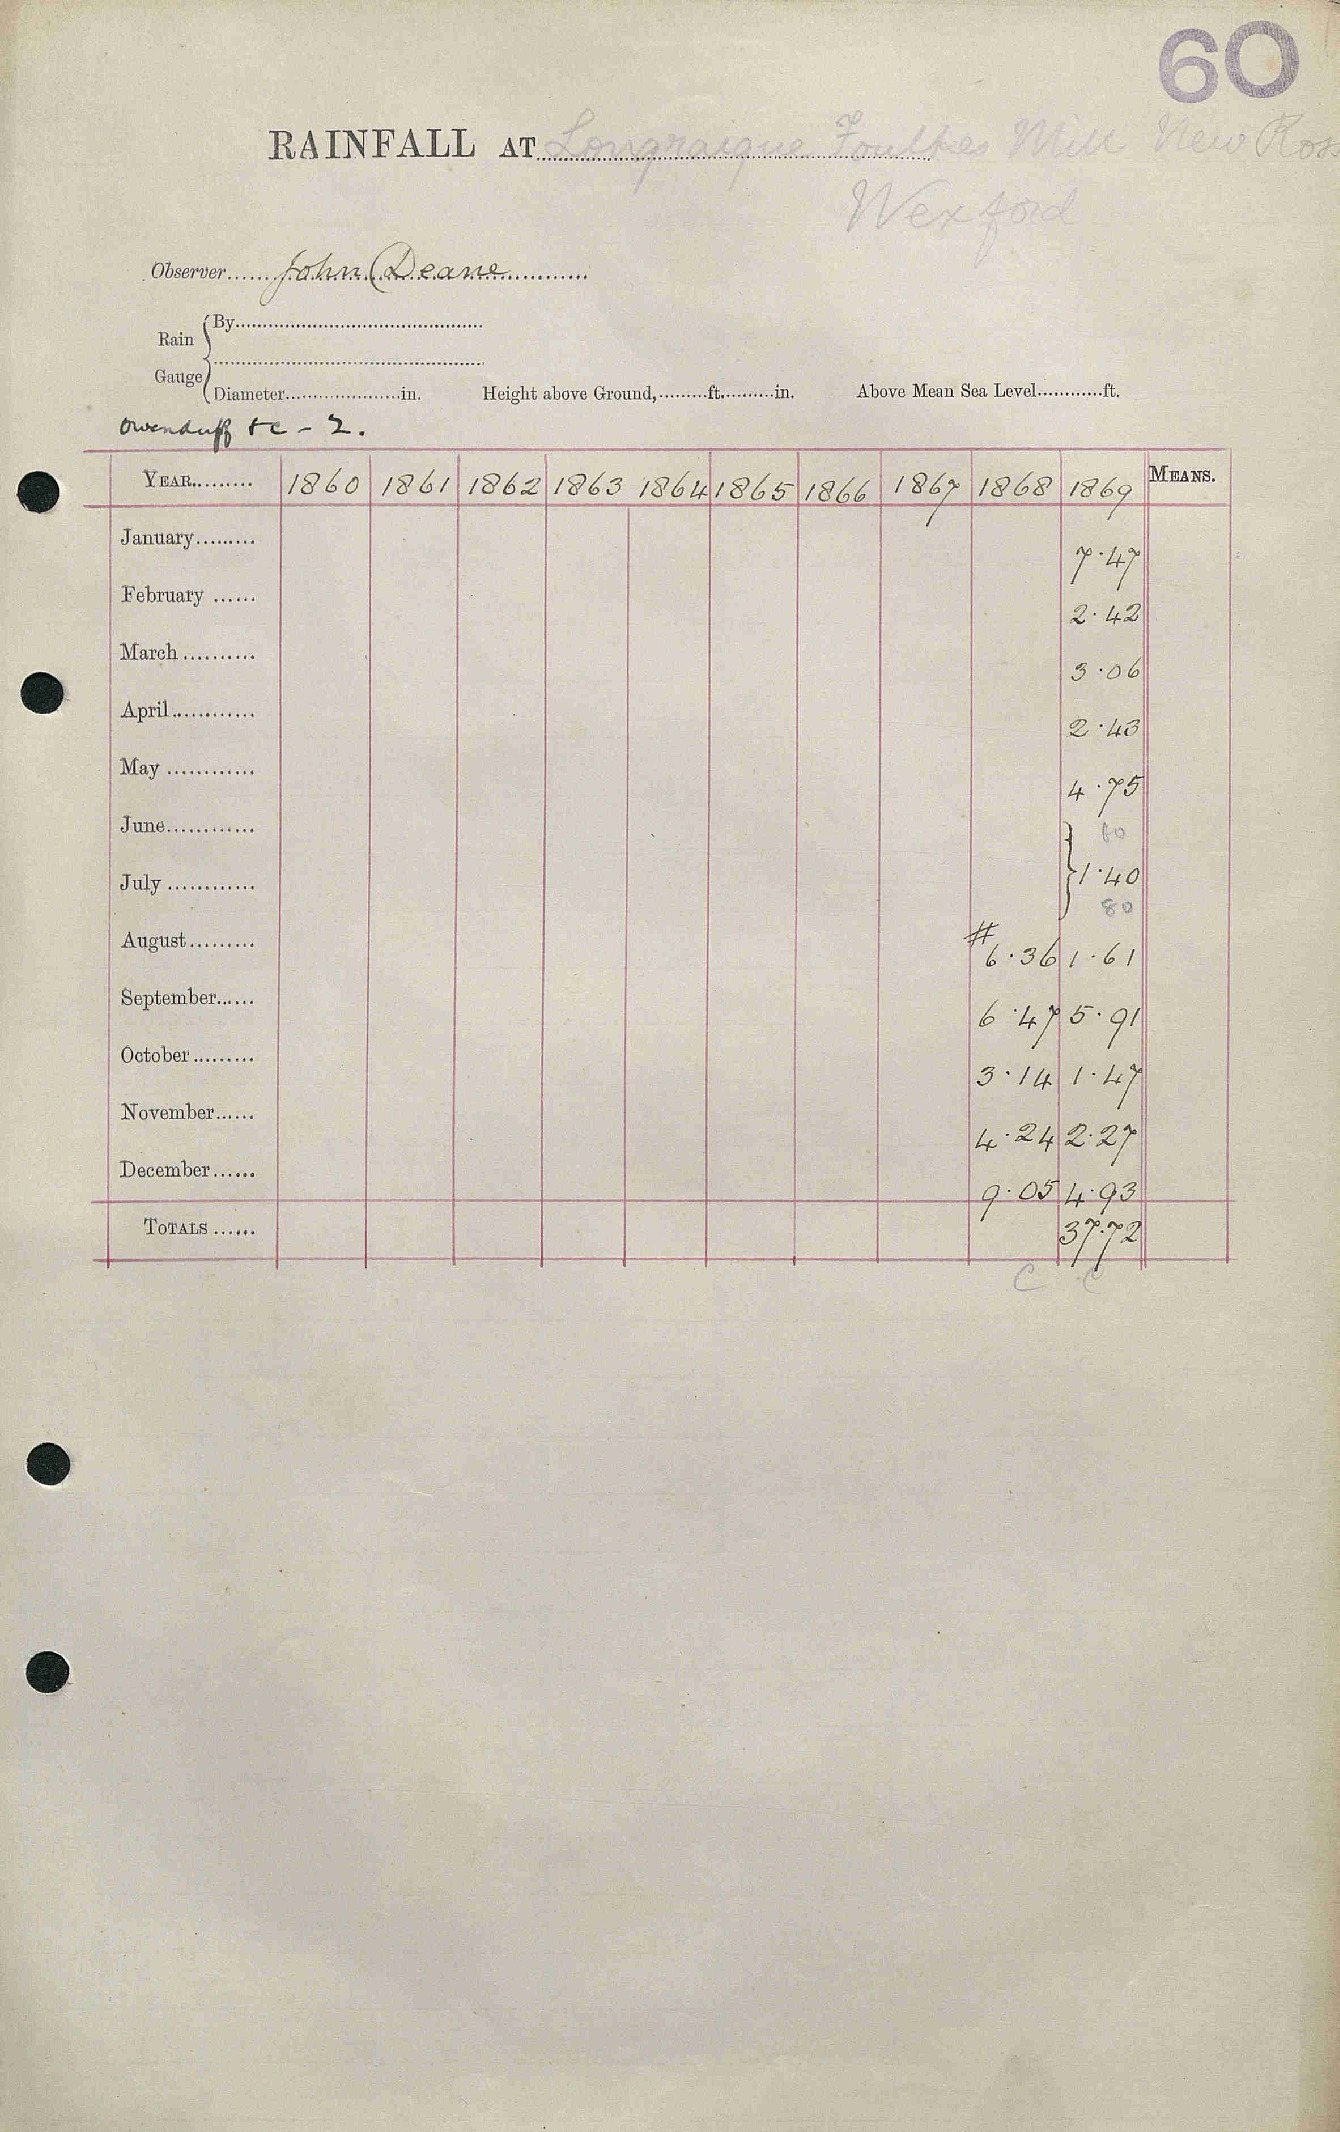 60
RAINFALL AT Longraigue Foulkes Mill New Ross
Wexford
Observer......John Deane............
Rain Gauge { By............
............
Diameter............in. Height above Ground,.........ft..........in. Above Mean Sea Level............ft.
Owenduff &c - 2.
YEAR......... 1860 1861 1862 1863 1864 1865 1866 1867 1868 1869 MEANS.
January......... 7.47
February ...... 2.42
March .......... 3.06
April............ 2.43
May ............ 4.75
June............ 60
July ............ } 1.40
80
August......... # 6.36 1.61
September...... 6.47 5.91
October......... 3.14 1.47
November...... 4.24 2.27
December...... 9.05 4.93
TOTALS ...... 37.72
C C